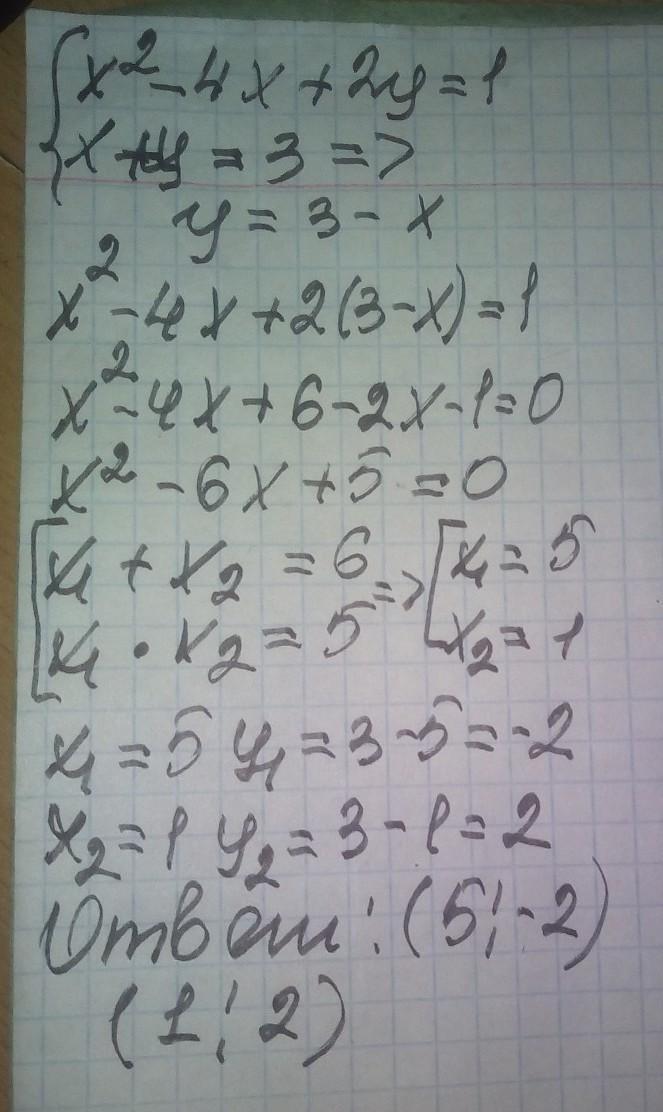 x² - 4x + 2y = 1
x + y = 3 =>
y = 3 - x
x² - 4x + 2(3 - x) = 1
x² - 4x + 6 - 2x - 1 = 0
x² - 6x + 5 = 0
x₁ + x₂ = 6 => x₁ = 5
x₁ · x₂ = 5 x₂ = 1
x₁ = 5 y₁ = 3 - 5 = -2
x₂ = 1 y₂ = 3 - 1 = 2
Ответ: (5; -2)
(1; 2)